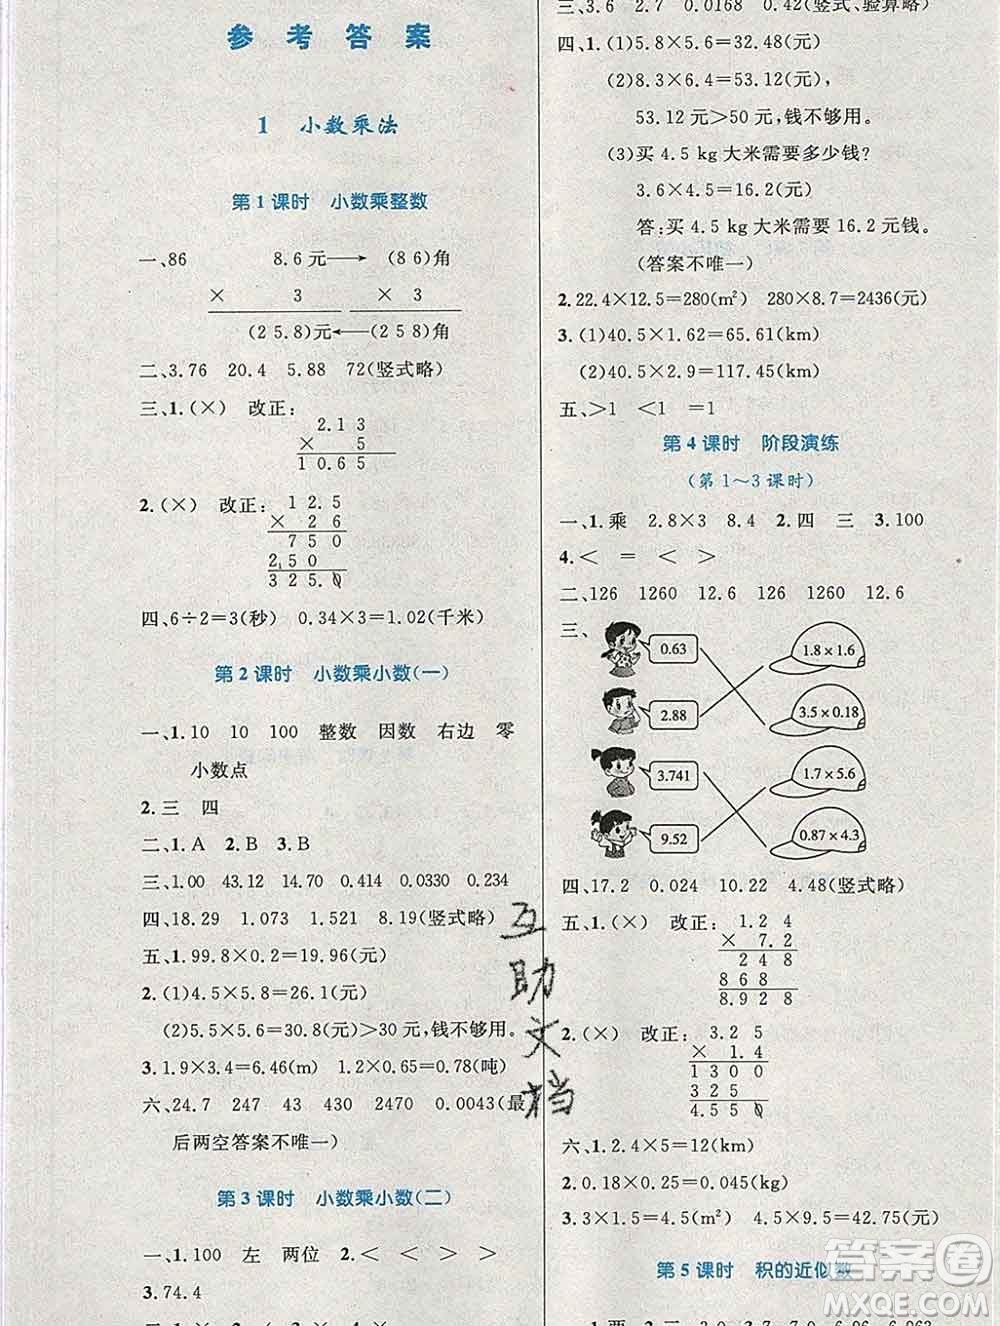 参考答案
1 小数乘法
第1课时 小数乘整数
一、86 8.6元→(86)角
× 3 × 3
(25.8)元←(258)角
二、3.76 20.4 5.88 72(竖式略)
三、1.(×) 改正:
2.13
× 5
10.65
2.(×) 改正: 12.5
× 26
750
250
325.0
四、6÷2=3(秒) 0.34×3=1.02(千米)
第2课时 小数乘小数(一)
一、1.10 10 100 整数 因数 右边 零
小数点
2.三 四
二、1.A 2.B 3.B
三、1.00 43.12 14.70 0.414 0.0330 0.234
四、18.29 1.073 1.521 8.19(竖式略)
五、1.99.8×0.2=19.96(元)
2.(1)4.5×5.8=26.1(元)
(2)5.5×5.6=30.8(元)>30元,钱不够用。
3.1.9×3.4=6.46(m) 1.2×0.65=0.78(吨)
六、24.7 247 43 430 2470 0.0043(最
后两空答案不唯一)
第3课时 小数乘小数(二)
一、1.100 左 两位 2.< < > >
3.74.4
三、3.6 2.7 0.0168 0.42(竖式、验算略)
四、1.(1)5.8×5.6=32.48(元)
(2)8.3×6.4=53.12(元),
53.12元>50元,钱不够用。
(3)买4.5 kg大米需要多少钱?
3.6×4.5=16.2(元)
答:买4.5 kg大米需要16.2元钱。
(答案不唯一)
2.22.4×12.5=280(m²) 280×8.7=2436(元)
3.(1)40.5×1.62=65.61(km)
(2)40.5×2.9=117.45(km)
五、>1 <1 =1
第4课时 阶段演练
(第1~3课时)
一、1.乘 2.8×3 8.4 2.四 三 3.100
4.< = < >
二、126 1260 12.6 126 1260 12.6
三、
0.63 1.8×1.6
2.88 3.5×0.18
3.741 1.7×5.6
9.52 0.87×4.3
四、17.2 0.024 10.22 4.48(竖式略)
五、1.(×) 改正: 1.24
× 7.2
248
868
8.928
2.(×) 改正: 3.25
× 1.4
1300
325
4.550
六、1.2.4×5=12(km)
2.0.18×0.25=0.045(kg)
3.3×1.5=4.5(m²) 4.5×9.5=42.75(元)
第5课时 积的近似数
互助文档
答案圈
MXQE.COM